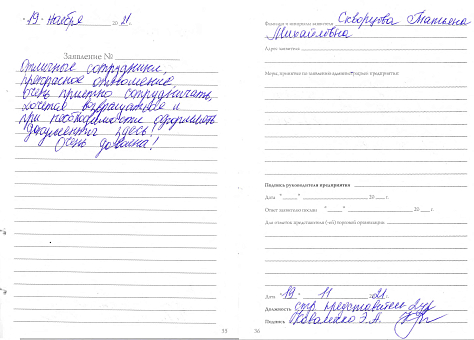 "19" ноября 20 21.
Заявление №
Отличные сотрудники,
прекрасное отношение,
очень приятно сотрудничать,
хочется возвращаться и
при необходимости оформлять
документы здесь!
Очень довольна!
33
Фамилия и инициалы заявителя Скворцова Татьяна
Михайловна
Адрес заявителя
Меры, принятые по заявлению администрацией предприятия:
Подпись руководителя предприятия
Дата " " 20 г.
Ответ заявителю послан " " 20 г.
Для отметки представителя (-ей) торговой организации
Дата 19 11 2021.
Должность стр. представитель
Подпись Коваленко Э. А.
36